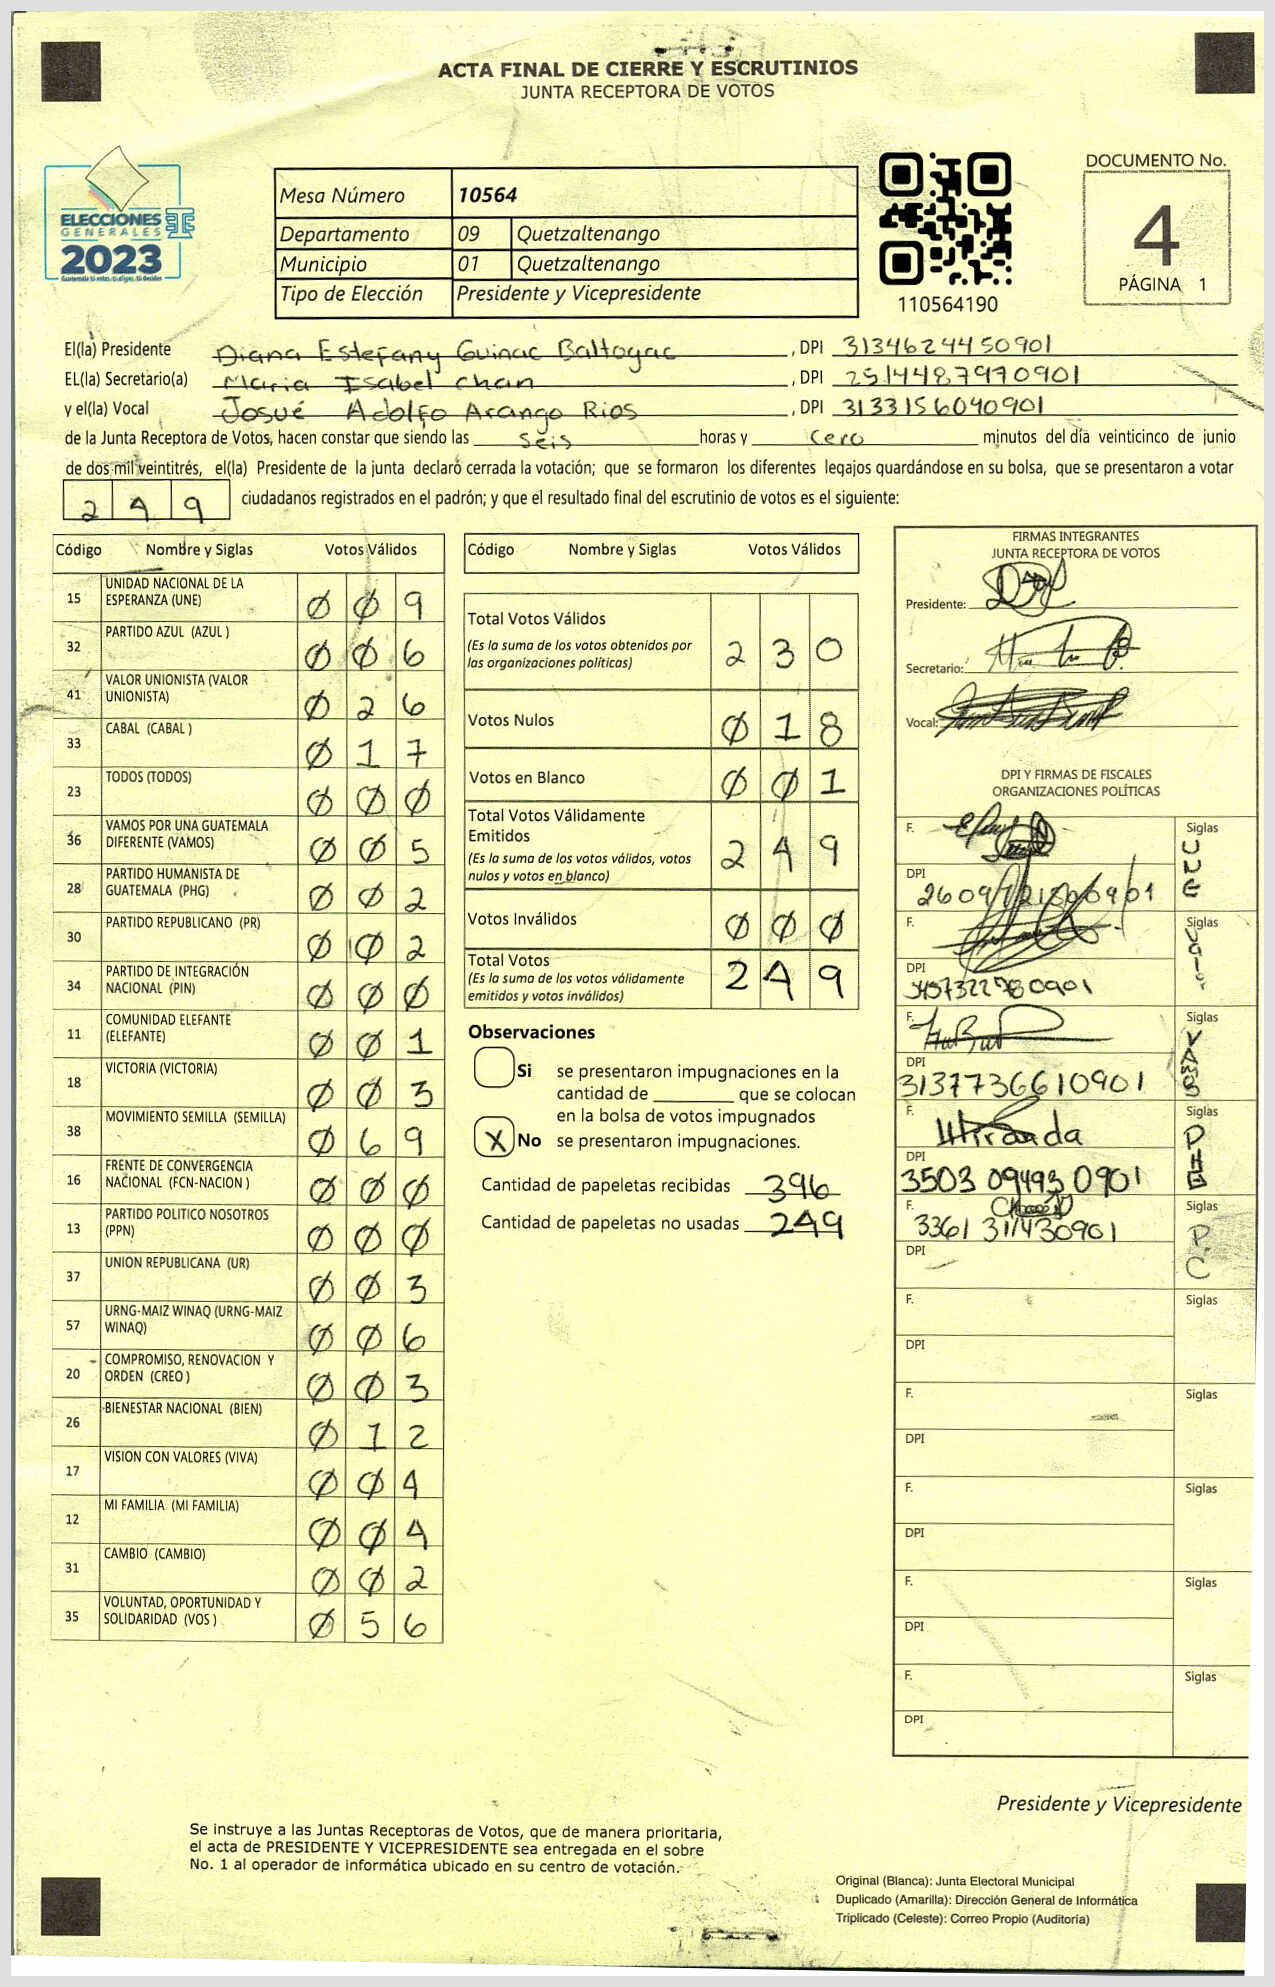 ACTA FINAL DE CIERRE Y ESCRUTINIOS
JUNTA RECEPTORA DE VOTOS
ELECCIONES
GENERALES
2023
Mesa Número 10564
Departamento 09 Quetzaltenango
Municipio 01 Quetzaltenango
Tipo de Elección Presidente y Vicepresidente
110564190
DOCUMENTO No.
4
PÁGINA 1
El(la) Presidente Diana Estefany Guinac Baltogac, DPI 3134624450901
EL(la) Secretario(a) Maria Isabel Chan, DPI 2514487970901
y el(la) Vocal Josué Adolfo Arango Rios, DPI 3133156040901
de la Junta Receptora de Votos, hacen constar que siendo las Seis horas y Cero minutos del día veinticinco de junio
de dos mil veintitrés, el(la) Presidente de la junta declaró cerrada la votación; que se formaron los diferentes legajos guardándose en su bolsa, que se presentaron a votar
249 ciudadanos registrados en el padrón; y que el resultado final del escrutinio de votos es el siguiente:
Código Nombre y Siglas Votos Válidos
15 UNIDAD NACIONAL DE LA ESPERANZA (UNE) 0 0 9
32 PARTIDO AZUL (AZUL ) 0 0 6
41 VALOR UNIONISTA (VALOR UNIONISTA) 0 2 6
33 CABAL (CABAL ) 0 1 7
23 TODOS (TODOS) 0 0 0
36 VAMOS POR UNA GUATEMALA DIFERENTE (VAMOS) 0 0 5
28 PARTIDO HUMANISTA DE GUATEMALA (PHG) 0 0 2
30 PARTIDO REPUBLICANO (PR) 0 0 2
34 PARTIDO DE INTEGRACIÓN NACIONAL (PIN) 0 0 0
11 COMUNIDAD ELEFANTE (ELEFANTE) 0 0 1
18 VICTORIA (VICTORIA) 0 0 3
38 MOVIMIENTO SEMILLA (SEMILLA) 0 6 9
16 FRENTE DE CONVERGENCIA NACIONAL (FCN-NACION ) 0 0 0
13 PARTIDO POLITICO NOSOTROS (PPN) 0 0 0
37 UNION REPUBLICANA (UR) 0 0 3
57 URNG-MAIZ WINAQ (URNG-MAIZ WINAQ) 0 0 6
20 COMPROMISO, RENOVACION Y ORDEN (CREO ) 0 0 3
26 BIENESTAR NACIONAL (BIEN) 0 1 2
17 VISION CON VALORES (VIVA) 0 0 4
12 MI FAMILIA (MI FAMILIA) 0 0 4
31 CAMBIO (CAMBIO) 0 0 2
35 VOLUNTAD, OPORTUNIDAD Y SOLIDARIDAD (VOS ) 0 5 6
Código Nombre y Siglas Votos Válidos
Total Votos Válidos 2 3 0
(Es la suma de los votos obtenidos por
las organizaciones políticas)
Votos Nulos 0 1 8
Votos en Blanco 0 0 1
Total Votos Válidamente
Emitidos 2 4 9
(Es la suma de los votos válidos, votos
nulos y votos en blanco)
Votos Inválidos 0 0 0
Total Votos 2 4 9
(Es la suma de los votos válidamente
emitidos y votos inválidos)
Observaciones
Si se presentaron impugnaciones en la
cantidad de ________ que se colocan
en la bolsa de votos impugnados
X No se presentaron impugnaciones.
Cantidad de papeletas recibidas 396
Cantidad de papeletas no usadas 249
FIRMAS INTEGRANTES
JUNTA RECEPTORA DE VOTOS
Presidente:
Secretario:
Vocal:
DPI Y FIRMAS DE FISCALES
ORGANIZACIONES POLÍTICAS
F. Siglas UNE
DPI
F. Siglas
DPI
F. Siglas VAMOS
DPI 3137736610901
F. Miranda Siglas PHG
DPI 3503 09493 0901
F. Siglas P.C
3361 311430901
DPI
F. Siglas
DPI
F. Siglas
DPI
F. Siglas
DPI
F. Siglas
DPI
F. Siglas
DPI
Presidente y Vicepresidente
Se instruye a las Juntas Receptoras de Votos, que de manera prioritaria,
el acta de PRESIDENTE Y VICEPRESIDENTE sea entregada en el sobre
No. 1 al operador de informática ubicado en su centro de votación.
Original (Blanca): Junta Electoral Municipal
Duplicado (Amarilla): Dirección General de Informática
Triplicado (Celeste): Correo Propio (Auditoría)